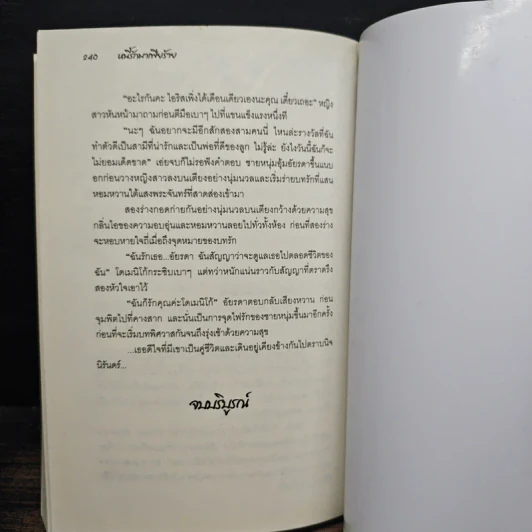 240 หนี้รักมาเฟียร้าย
"อะไรกันคะ ไอริสเพิ่งได้เดือนเดียวเองนะคุณ เดี๋ยวเถอะ" หญิง
สาวหันหน้ามาถามก่อนตีมือเบาๆ ไปที่แขนแข็งแรงหนึ่งที
"นะๆ ฉันอยากจะมีอีกสักสองสามคนนี่ ไหนล่ะรางวัลที่ฉัน
ทำตัวดีเป็นสามีที่น่ารักและเป็นพ่อที่ดีของลูก ไม่รู้ล่ะ ยังไงวันนี้ฉันก็จะ
ไม่ยอมเด็ดขาด" เอ่ยจบก็ไม่รอฟังคำตอบ ชายหนุ่มอุ้มอัยรดาขึ้นแนบ
อกก่อนวางหญิงสาวลงบนเตียงอย่างนุ่มนวลและเริ่มร่ายบทรักที่แสน
หอมหวานใต้แสงพระจันทร์ที่สาดส่องเข้ามา
สองร่างกอดก่ายกันอย่างนุ่มนวลบนเตียงกว้างด้วยความสุข
กลิ่นไอของความอบอุ่นและหอมหวานลอยไปทั่วทั้งห้อง ก่อนที่สองร่าง
จะหอบหายใจถี่เมื่อถึงจุดหมายของบทรัก
"ฉันรักเธอ...อัยรดา ฉันสัญญาว่าจะดูแลเธอไปตลอดชีวิตของ
ฉัน" โดเมนิโก้กระซิบเบาๆ แต่ทว่าหนักแน่นราวกับสัญญาที่ตราตรึง
สองหัวใจเอาไว้
"ฉันก็รักคุณค่ะโดเมนิโก้" อัยรดาตอบกลับเสียงหวาน ก่อน
จุมพิตไปที่คางสาก และนั่นเป็นการจุดไฟรักของชายหนุ่มขึ้นมาอีกครั้ง
ก่อนที่จะเริ่มบทพิศวาสกันจนถึงรุ่งเช้าด้วยความสุข
...เธอดีใจที่มีเขาเป็นคู่ชีวิตและเดินอยู่เคียงข้างกันไปตราบนิจ
นิรันดร์...
จบบริบูรณ์